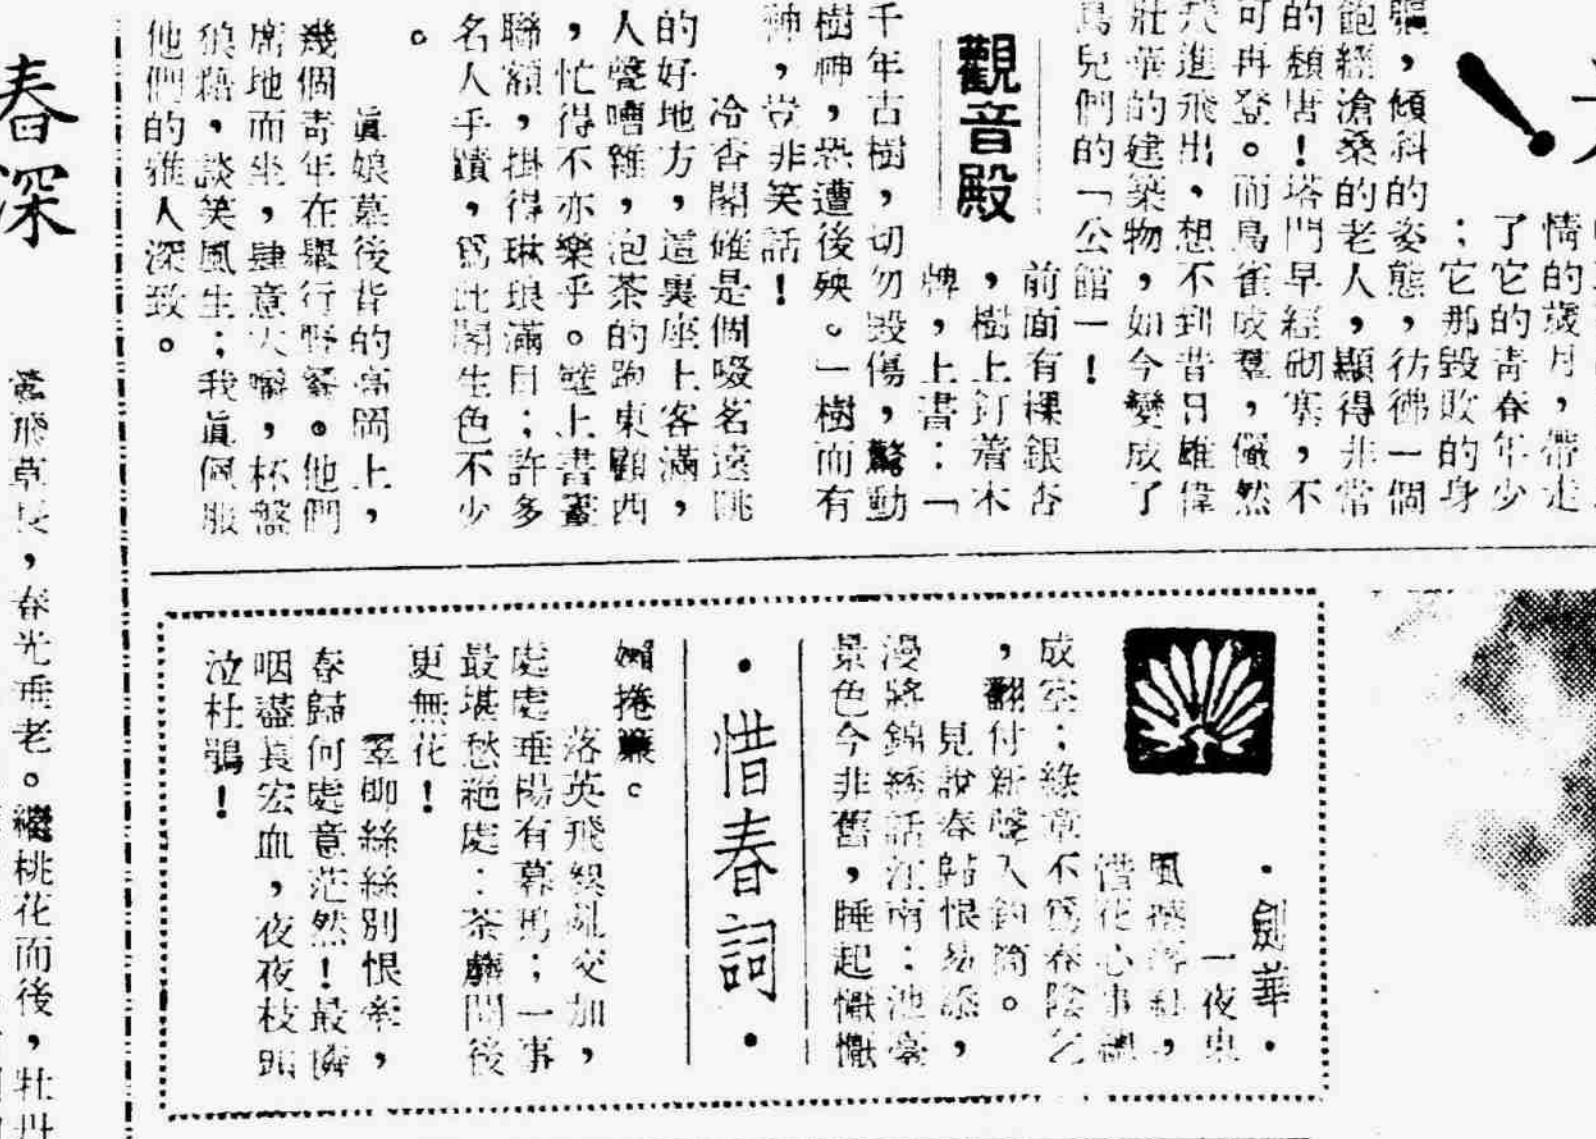 情的歲月，帶走
了它的青春年少
；它那毀敗的身
軀，傾斜的姿態，彷彿一個
飽經滄桑的老人，顯得非常
的頹唐！塔門早經砌塞，不
可再登。而鳥雀成羣，儼然
飛進飛出，想不到昔日雄偉
壯華的建築物，如今變成了
鳥兒們的「公館」！
觀音殿
前面有棵銀杏
，樹上釘着木
牌，上書：「
千年古樹，切勿毀傷，驚動
樹神，恐遭後殃。」樹而有
神，豈非笑話！
冷香閣確是個啜茗遠眺
的好地方，這裏座上客滿，
人聲嘈雜，泡茶的跑東顧西
，忙得不亦樂乎。壁上書畫
聯額，掛得琳琅滿目；許多
名人手蹟，爲此閣生色不少
。
眞娘墓後背的高岡上，
幾個靑年在舉行野餐。他們
席地而坐，肆意大嚼，杯盤
狼藉，談笑風生；我眞佩服
他們的雅人深致。
春深
鶯飛草長，春光垂老。繼桃花而後，牡丹
·劍華·
一夜
風
惜花心事
成空；綠章不爲春陰乞
，翻付新聲入釣筒。
見說春歸恨易添，
漫將錦綉話江南：池臺
景色今非舊，睡起懨懨
·惜春詞·
嬾捲簾。
落英飛絮亂交加，
處處垂楊有暮鴉；一事
最堪愁絕處：荼蘼開後
更無花！
翠柳絲絲別恨牽，
春歸何處意茫然！最憐
咽盡萇宏血，夜夜枝頭
泣杜鵑！